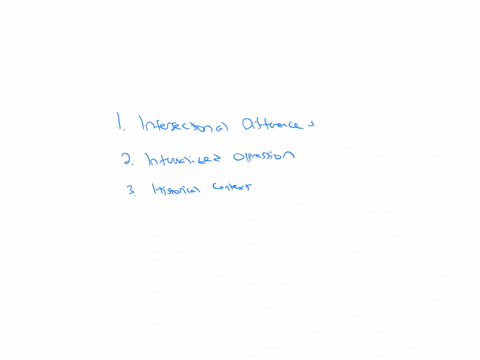 1. Intersectional Differences
2. Internalized Oppression
3. Historical Context